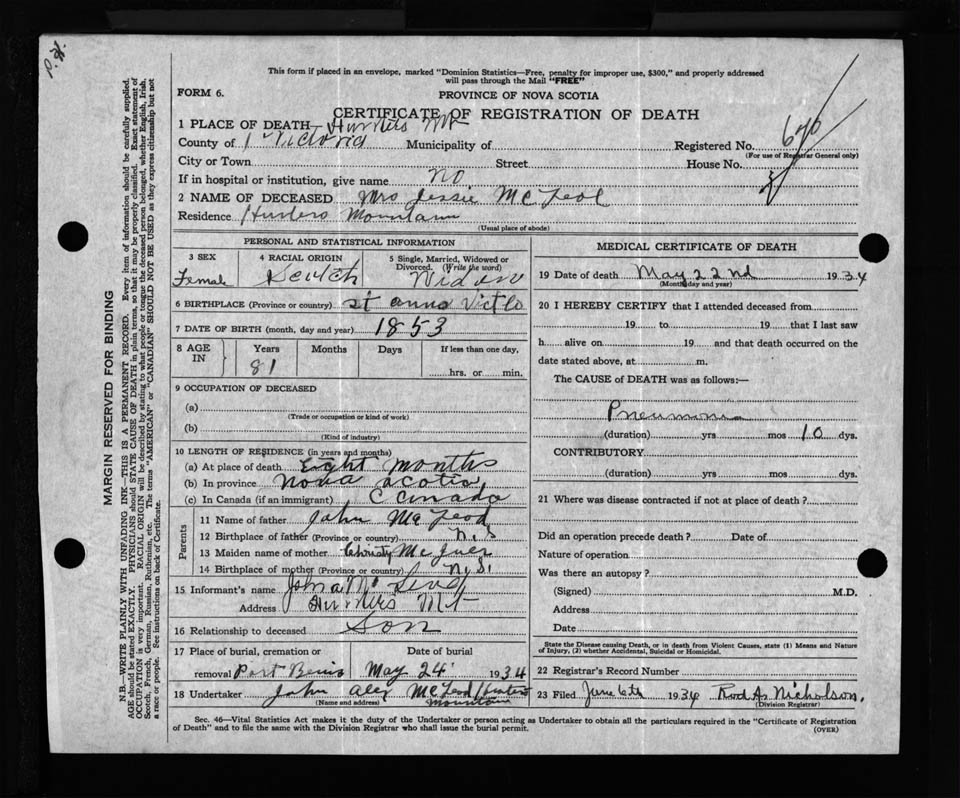 P.H.
This form if placed in an envelope, marked "Dominion Statistics—Free, penalty for improper use, $300," and properly addressed
will pass through the Mail "FREE"
FORM 6.
PROVINCE OF NOVA SCOTIA
CERTIFICATE OF REGISTRATION OF DEATH
1 PLACE OF DEATH—Hunters Mt
County of Victoria Municipality of Registered No. 670
(For use of Registrar General only)
City or Town Street House No.
If in hospital or institution, give name no
2 NAME OF DECEASED Mrs Jessie McLeod
Residence Hunters Mountain
(Usual place of abode)
PERSONAL AND STATISTICAL INFORMATION
3 SEX 4 RACIAL ORIGIN 5 Single, Married, Widowed or
Divorced. (Write the word)
Female Scutch Widow
6 BIRTHPLACE (Province or country) st anns Vict Co
7 DATE OF BIRTH (month, day and year) 1853
8 AGE IN Years Months Days If less than one day,
81 hrs. or min.
9 OCCUPATION OF DECEASED
(a)
(Trade or occupation or kind of work)
(b)
(Kind of industry)
10 LENGTH OF RESIDENCE (in years and months)
(a) At place of death Eight months
(b) In province nova scotia
(c) In Canada (if an immigrant) Canada
Parents
11 Name of father John McLeod
12 Birthplace of father (Province or country) N.S
13 Maiden name of mother Christy
14 Birthplace of mother (Province or country) N.S.
15 Informant's name John a
Address Hunters Mt
16 Relationship to deceased Son
17 Place of burial, cremation or Date of burial
removal Port Bevis May 24 1934
18 Undertaker John Alex McLeod Hunters
(Name and address) Mountain
MEDICAL CERTIFICATE OF DEATH
19 Date of death May 22nd 1934
(Month, day and year)
20 I HEREBY CERTIFY that I attended deceased from
19 to 19 that I last saw
h alive on 19 and that death occurred on the
date stated above, at m.
The CAUSE of DEATH was as follows:—
Pneumonia
(duration) yrs mos 10 dys.
CONTRIBUTORY
(duration) yrs mos dys.
21 Where was disease contracted if not at place of death?
Did an operation precede death? Date of
Nature of operation
Was there an autopsy?
(Signed) M.D.
Address
Date
State the Disease causing Death, or in death from Violent Causes, state (1) Means and Nature
of Injury, (2) whether Accidental, Suicidal or Homicidal.
22 Registrar's Record Number
23 Filed June 6th 1934 Rod A. Nicholson.
(Division Registrar)
Sec. 46—Vital Statistics Act makes it the duty of the Undertaker or person acting as Undertaker to obtain all the particulars required in the "Certificate of Registration
of Death" and to file the same with the Division Registrar who shall issue the burial permit.
(OVER)
MARGIN RESERVED FOR BINDING
N.B.—WRITE PLAINLY WITH UNFADING INK.—THIS IS A PERMANENT RECORD. Every item of information should be carefully supplied.
AGE should be stated EXACTLY. PHYSICIANS should STATE CAUSE OF DEATH in plain terms, so that it may be properly classified. Exact statement of
OCCUPATION is very important. RACIAL ORIGIN will be described by stating to what people or tongue the deceased person belonged, whether English, Irish,
Scotch, French, German, Russian, Ruthenian, etc. The terms "AMERICAN" or "CANADIAN" SHOULD NOT BE USED as they express citizenship but not
a race or people. See instructions on back of Certificate.